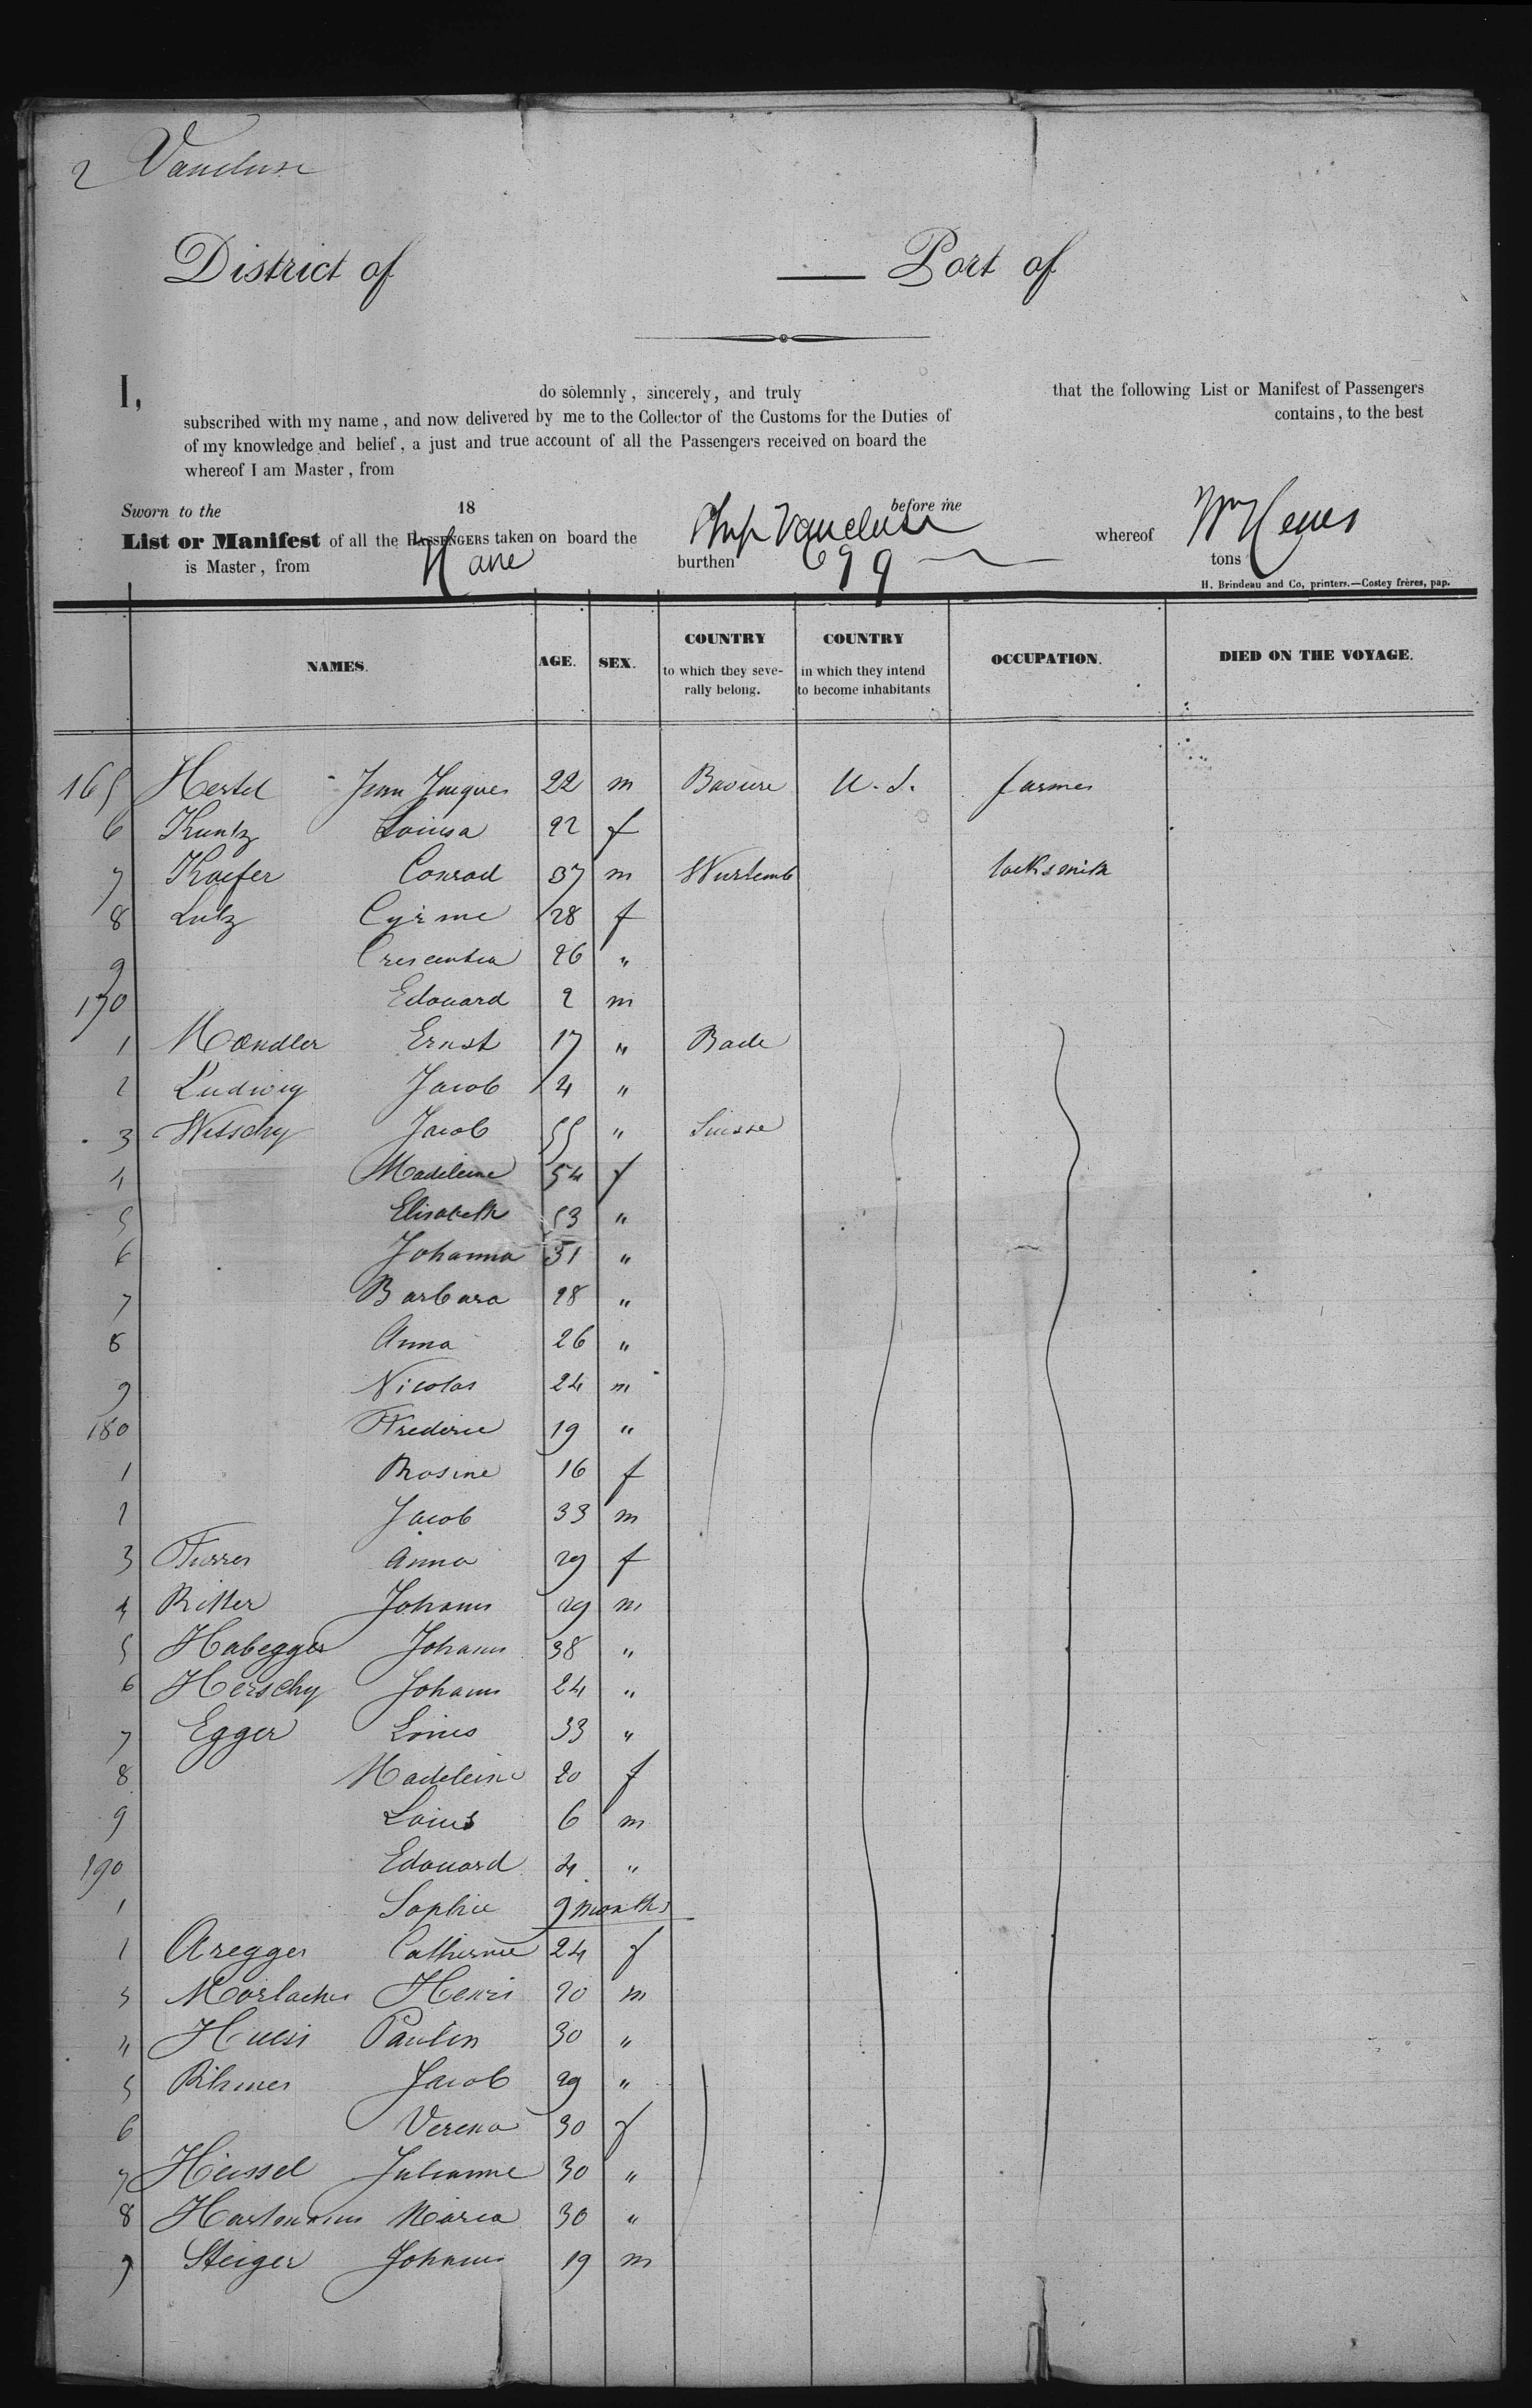 2 Vaucluse
District of — Port of
I, do solemnly, sincerely, and truly that the following List or Manifest of Passengers
subscribed with my name, and now delivered by me to the Collector of the Customs for the Duties of contains, to the best
of my knowledge and belief, a just and true account of all the Passengers received on board the
whereof I am Master, from
Sworn to the 18 before me
List or Manifest of all the PASSENGERS taken on board the Ship Vaucluse whereof Wm
is Master, from Havre burthen 699 tons
H. Brindeau and Co, printers.—Costey frères, pap.
NAMES. AGE. SEX. COUNTRY to which they severally belong. COUNTRY in which they intend to become inhabitants OCCUPATION. DIED ON THE VOYAGE.
165 Hertel Jean Jacques 22 m Baviere U. S. farmer
6 Kuntz Louisa 22 f
7 Kaefer Conrad 37 m Wurtemb locksmith
8 Lutz 28 f
9 Crescentia 26 "
170 Edouard 2 m
1 Maendler Ernst 17 " Bade
2 Ludwig Jacob 4 "
3 Witschy Jacob 55 " Suisse
4 Madeleine 54 f
5 Elisabeth 53 "
6 Johanna 31 "
7 Barbara 28 "
8 Anna 26 "
9 Nicolas 24 m
180 Frederic 19 "
1 Rosine 16 f
2 Jacob 33 m
3 Furrer Anna 29 f
4 Ritter Johann 29 m
5 Habegger Johann 38 "
6 Herschy Johann 24 "
7 Egger Louis 33 "
8 Madeleine 20 f
9 Louis 6 m
190 Edouard 4 "
1 Sophie 9 months
2 Aregger Catherine 24 f
3 Morlacher Henri 20 m
4 Huesi Paulin 30 "
5 Rihmer Jacob 29 "
6 Verena 30 f
7 Heissel Julianne 30 "
8 Hartmann Maria 30 "
9 Steiger Johann 19 m